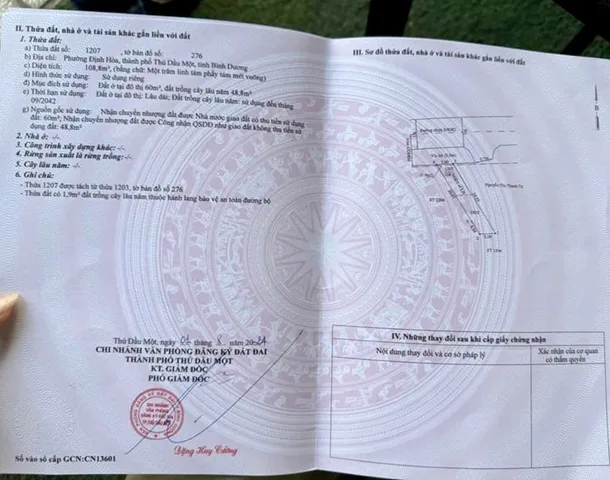 II. Thửa đất, nhà ở và tài sản khác gắn liền với đất
1. Thửa đất:
a) Thửa đất số: 1207 , tờ bản đồ số: 276
b) Địa chỉ: Phường Định Hòa, thành phố Thủ Dầu Một, tỉnh Bình Dương
c) Diện tích: 108,8m², (bằng chữ: Một trăm linh tám phẩy tám mét vuông)
d) Hình thức sử dụng: Sử dụng riêng
đ) Mục đích sử dụng: Đất ở tại đô thị 60m², đất trồng cây lâu năm 48,8m²
e) Thời hạn sử dụng: Đất ở tại đô thị: Lâu dài; Đất trồng cây lâu năm: sử dụng đến tháng
09/2042
g) Nguồn gốc sử dụng: Nhận chuyển nhượng đất được Nhà nước giao đất có thu tiền sử dụng
đất: 60m²; Nhận chuyển nhượng đất được Công nhận QSDĐ như giao đất không thu tiền sử
dụng đất: 48,8m²
2. Nhà ở: -/-
3. Công trình xây dựng khác: -/-
4. Rừng sản xuất là rừng trồng: -/-
5. Cây lâu năm: -/-
6. Ghi chú:
- Thửa 1207 được tách từ thửa 1203, tờ bản đồ số 276
- Thửa đất có 1,9m² đất trồng cây lâu năm thuộc hành lang bảo vệ an toàn đường bộ
Thủ Dầu Một, ngày 06 tháng 8 năm 2024
CHI NHÁNH VĂN PHÒNG ĐĂNG KÝ ĐẤT ĐAI
THÀNH PHỐ THỦ DẦU MỘT
KT. GIÁM ĐỐC
PHÓ GIÁM ĐỐC
Đặng Huy Cường
Số vào sổ cấp GCN: CN13601
III. Sơ đồ thửa đất, nhà ở và tài sản khác gắn liền với đất
IV. Những thay đổi sau khi cấp giấy chứng nhận
Nội dung thay đổi và cơ sở pháp lý
Xác nhận của cơ quan
có thẩm quyền